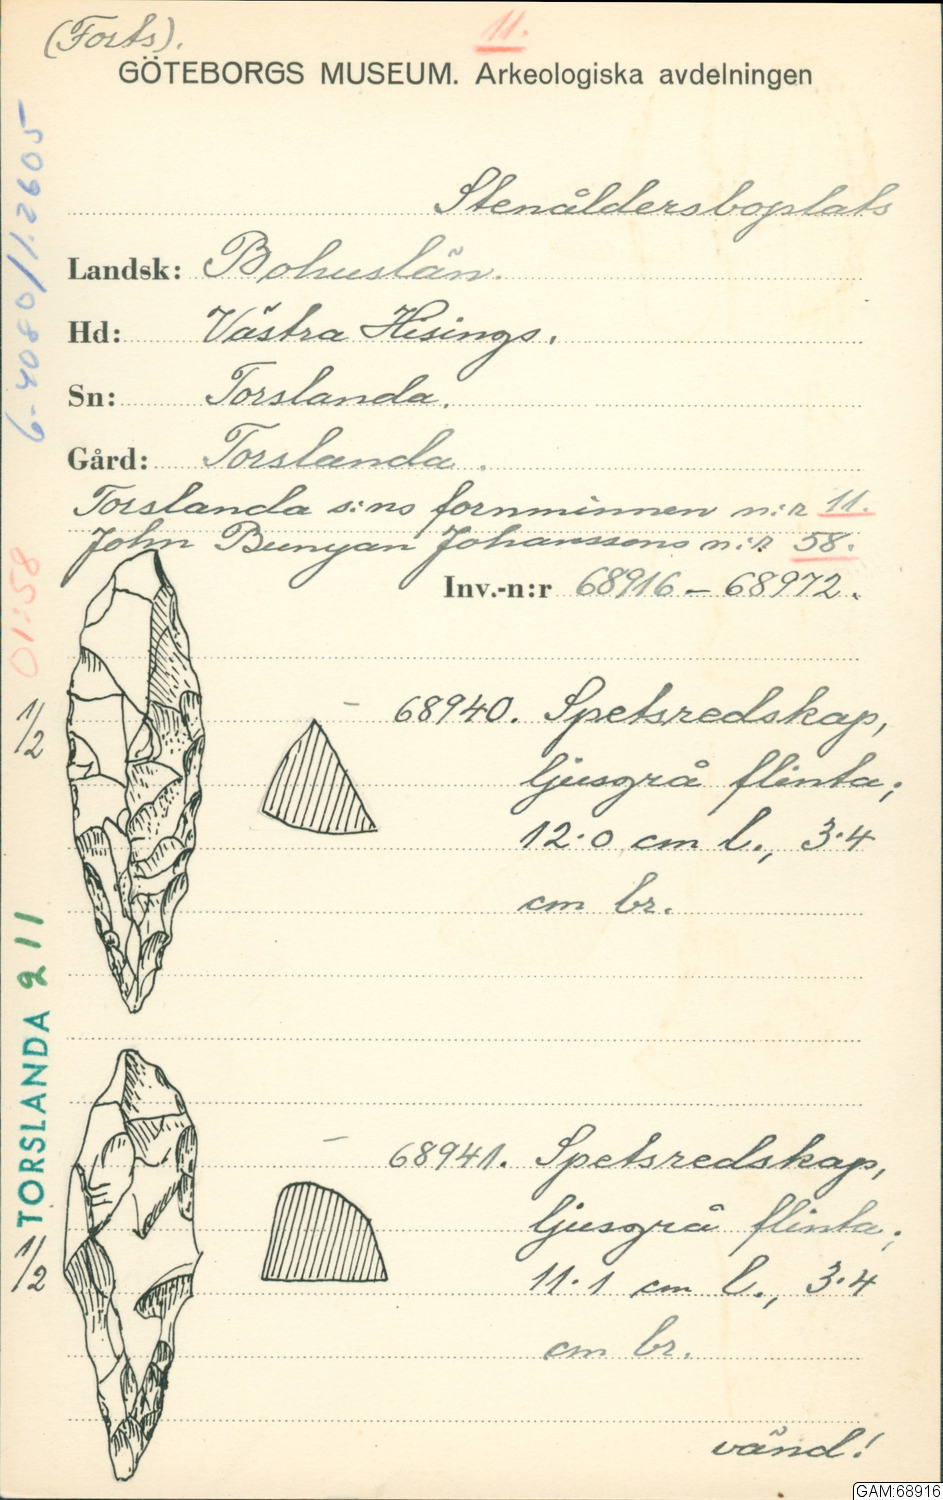 (Forts).
11.
GÖTEBORGS MUSEUM. Arkeologiska avdelningen
Stenåldersboplats
Landsk: Bohuslän.
Hd: Västra Hisings.
Sn: Torslanda.
Gård: Torslanda.
Torslanda s:ns fornminnen n:r 11.
John Bunyan Johanssons n:r 58.
Inv.-n:r 68916 – 68972.
68940. Spetsredskap,
ljusgrå flinta;
12·0 cm l., 3·4
cm br.
1/2
68941. Spetsredskap,
ljusgrå flinta;
11·1 cm l., 3·4
cm br.
1/2
vänd!
6-4080/1.2605
01:58
TORSLANDA 211
GAM:68916